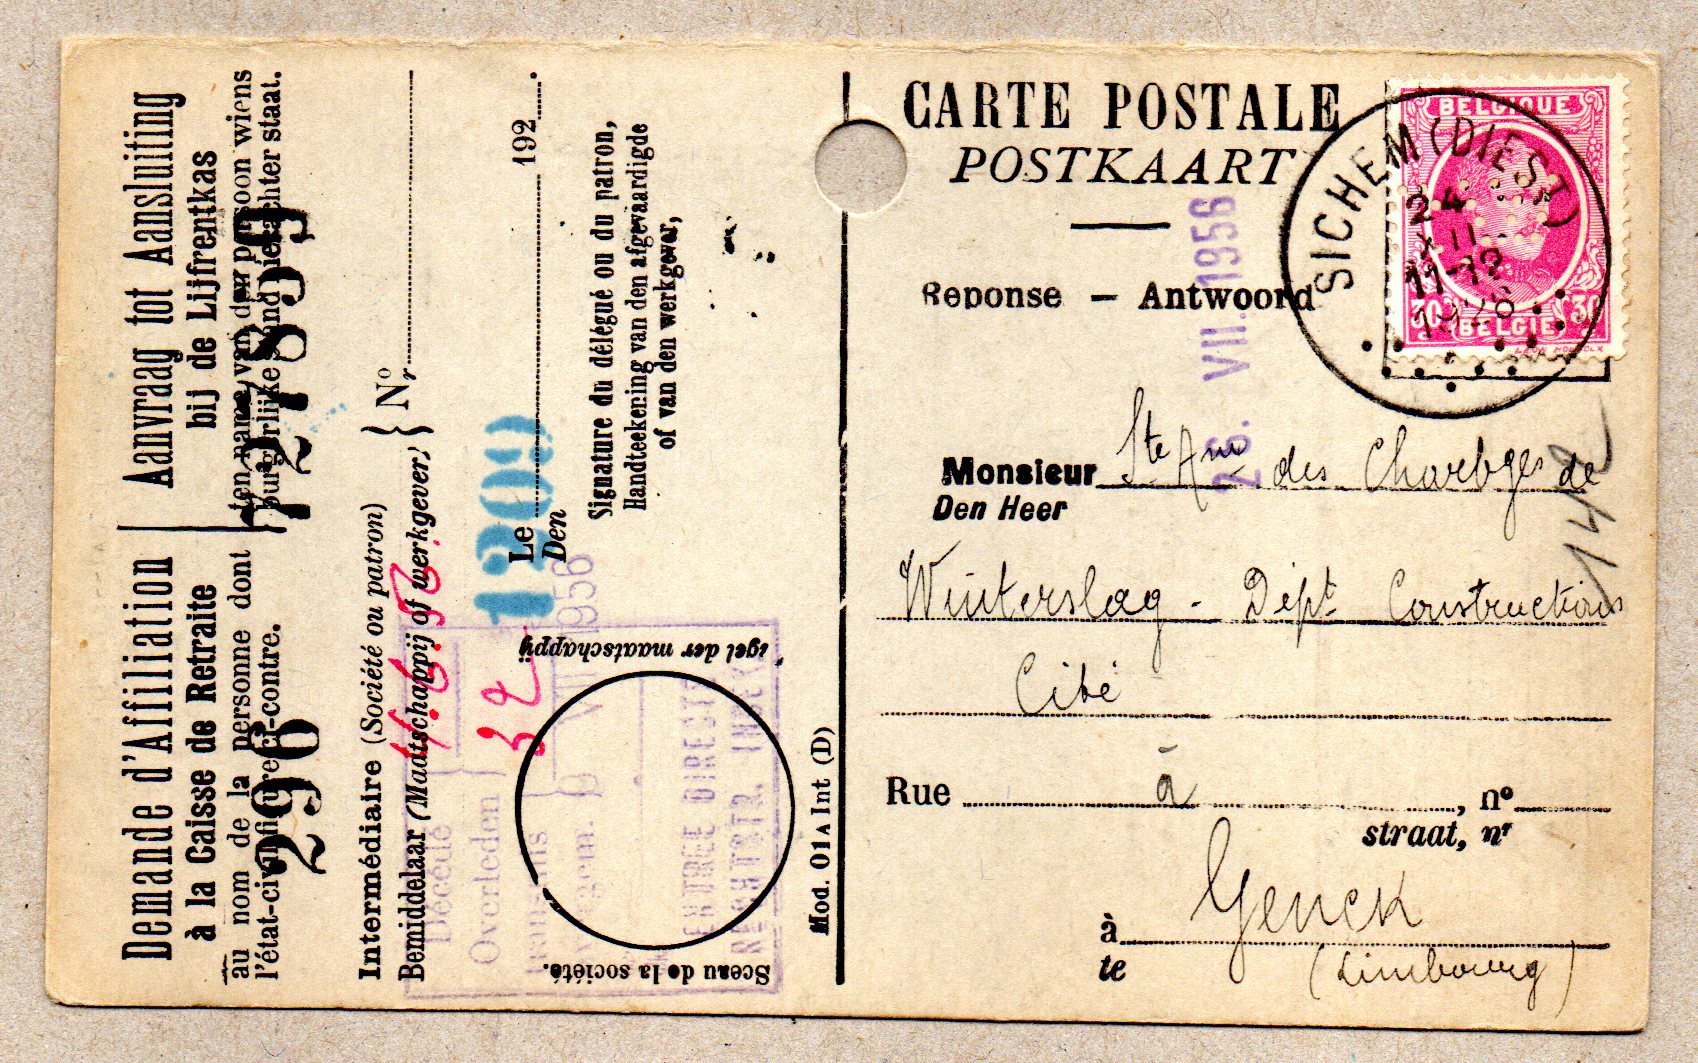 Demande d'Affiliation
à la Caisse de Retraite
au nom de la personne dont
l'état-civil figure ci-contre.
Aanvraag tot Aansluiting
bij de Lijfrentkas
ten name van den persoon wiens
burgerlijke stand hierachter staat.
296
Intermédiaire (Société ou patron)
Bemiddelaar (Maatschappij of werkgever)
} Nº
r
Décédé
Overleden
32
1209
Le 192
Den
Signature du délégué ou du patron,
Handteekening van den afgevaardigde
of van den werkgever,
VIII 1956
igel der maatschappij
Sceau de la société.
ENTREE DIRECTE
RECHTSTR.
Mod. 01A Int (D)
CARTE POSTALE
POSTKAART
Reponse — Antwoord
26. VII. 1956
BELGIQUE
30 30
BELGIË
SICHEM (DIEST)
24
XII
11-12
1926
142
Monsieur Ste Ame des Charbges de
Den Heer
Winterslag - Dépt Constructions
Cité
Rue à , nº
straat, nr
à Genck
te (Limbourg)